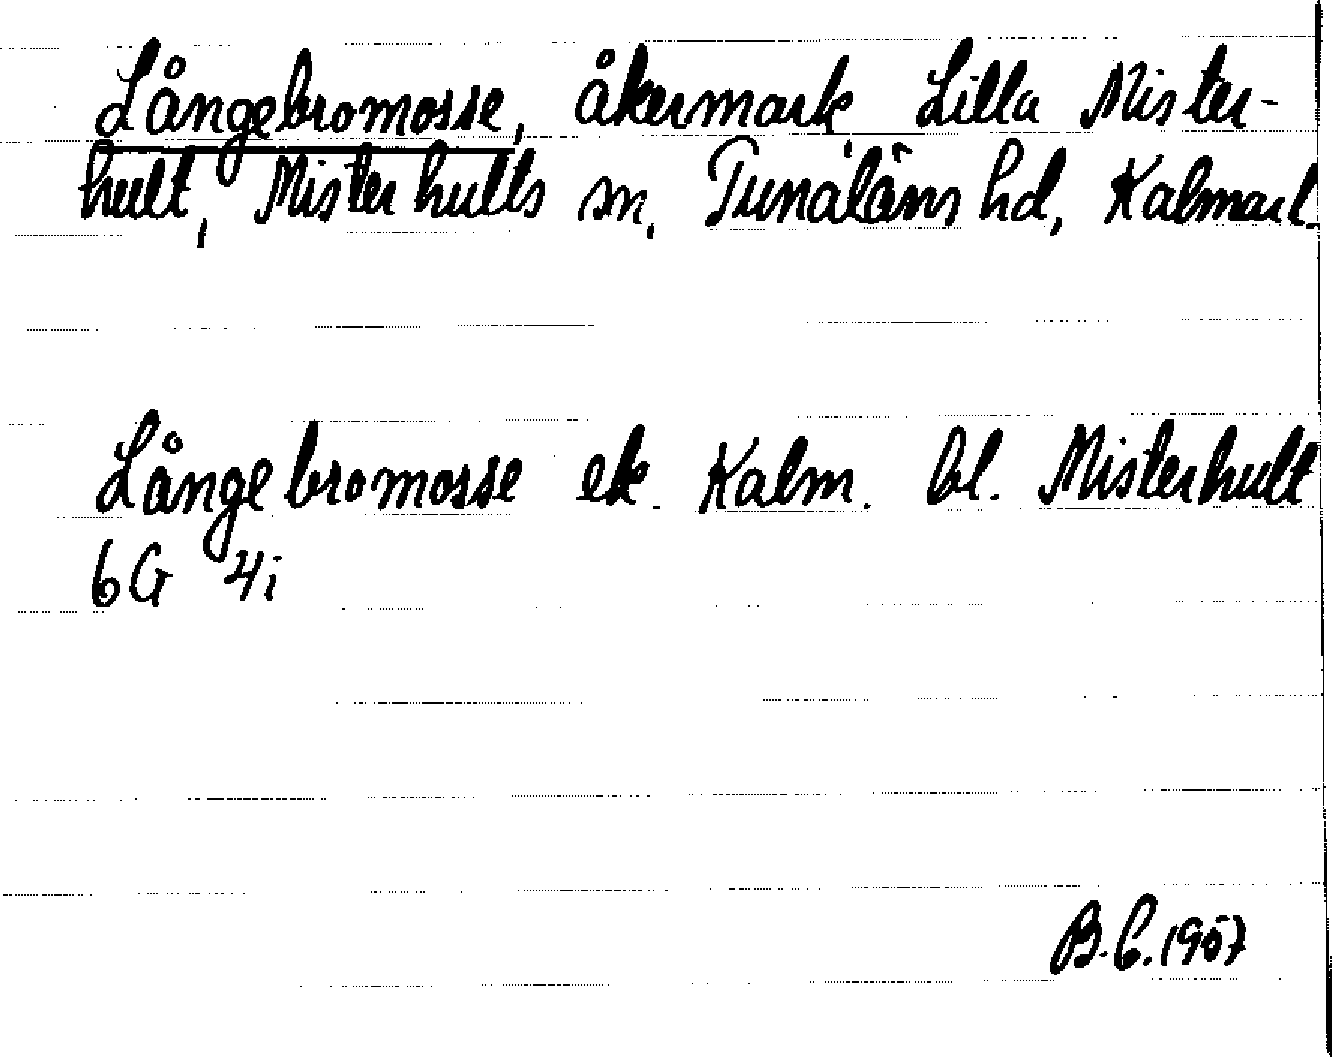 Långebromosse, åkermark, Lilla Mister-
hult, Misterhults sn, Tunaläns hd, Kalmar l.
Långebromosse ek. Kalm. bl. Misterhult
6G 4i
B.C. 1957